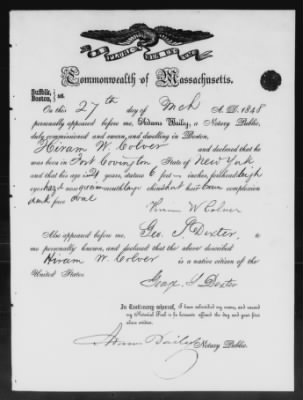 E PLURIBUS UNUM
Commonwealth of Massachusetts.
Suffolk, Boston, } ss.
On this 27th day of Mch A. D. 1848
personally appeared before me, Adams Bailey, a Notary Public,
duly commissioned and sworn, and dwelling in Boston,
Hiram W. Colver and declared that he
was born in Fort Covington State of New York
and that his age is 24 years, stature 6 feet — inches, forehead high
eyes hazel nose mouth large chin short hair brown complexion
dark face oval
Hiram W Colver
Also appeared before me, Geo. S Dexter, to
me personally known, and declared that the above described
Hiram W. Colver is a native citizen of the
United States.
George S Dexter
In Testimony whereof, I have subscribed my name, and caused
my Notarial Seal to be hereunto affixed the day and year first
above written.
Adams Bailey Notary Public.